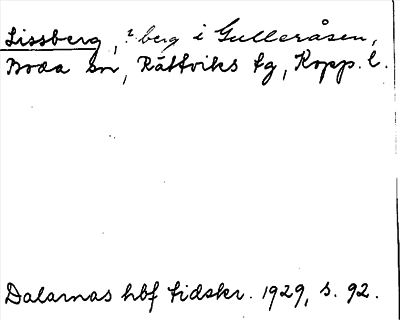 Lissberg, berg i Gulleråsen,
Boda sn, Rättviks tg, Kopp. l.
Dalarnas hbf tidskr. 1929, s. 92.